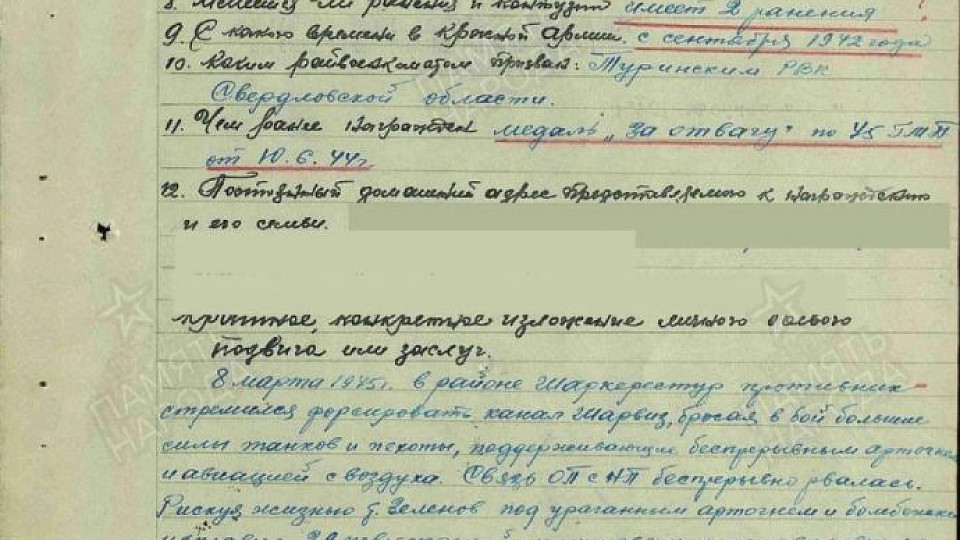 8. имеет 2 ранения
9. С какого времени в Красной армии. с сентября 1942 года
10. Каким райвоенкоматом призван: Туринским РВК
Свердловской области.
11. Чем ранее награжден медаль „За отвагу" по 45
от 10.6.44г.
12. Постоянный домашний адрес представляемого к награждению
и его семьи.
конкретное изложение личного боевого
подвига или заслуг.
8 марта 1945г. в районе Шаркерестур противник
стремился форсировать канал Шарвиз, бросая в бой большие
силы танков и пехоты, поддерживающие беспрерывным артогнем
и авиацией с воздуха. Связь ОП с НП беспрерывно рвалась.
Рискуя жизнью т. Зеленов под ураганным артогнем и
ПАМЯТЬ
НАРОДА
ПАМЯТЬ